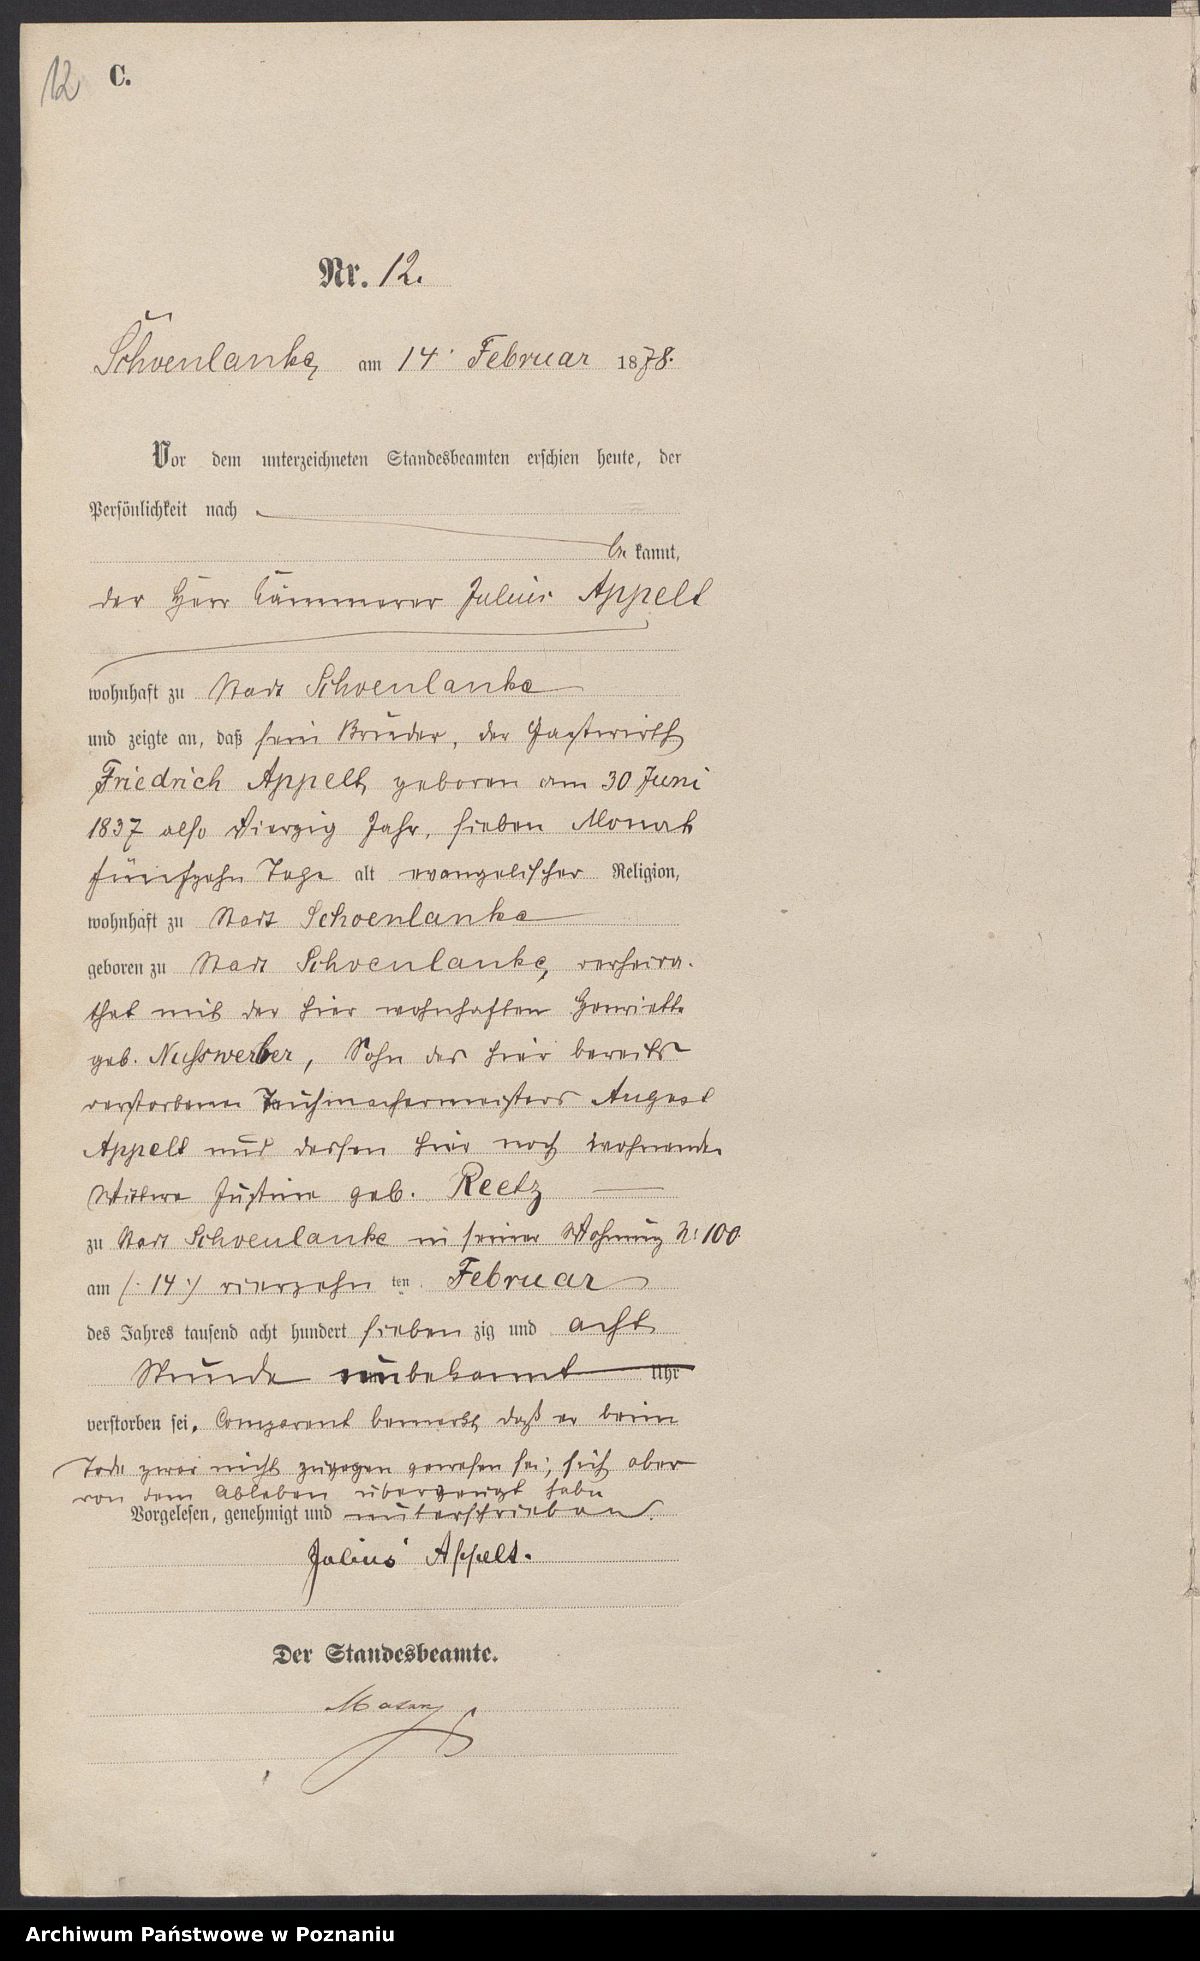 12
C.
Nr. 12.
Schoenlanke, am 14. Februar 1878.
Vor dem unterzeichneten Standesbeamten erschien heute, der
Persönlichkeit nach
be kannt,
der Herr Kämmerer Julius Appelt
wohnhaft zu Stadt Schoenlanke
und zeigte an, daß sein Bruder, der Gastwirth
Friedrich Appelt, geboren am 30 Juni
1837 also Vierzig Jahr, sieben Monat
fünfzehn Tage alt evangelischer Religion,
wohnhaft zu Stadt Schoenlanke
geboren zu Stadt Schoenlanke, verheira-
thet mit der hier wohnhaften Henriette
geb. Nusswerber, Sohn des hier bereits
verstorbenen Tuchmachermeisters August
Appelt und dessen hier noch wohnende
Wittwe Justine geb. Reetz
zu Stadt Schoenlanke in seiner Wohnung N: 100.
am (: 14 :) vierzehn ten Februar
des Jahres tausend acht hundert sieben zig und acht
Stunde unbekannt Uhr
verstorben sei. Comparent bemerkt, daß er beim
Tode zwar nicht zugegen gewesen sei, sich aber
von dem Ableben überzeugt habe
Vorgelesen, genehmigt und unterschrieben.
Julius Appelt.
Der Standesbeamte.
Archiwum Państwowe w Poznaniu